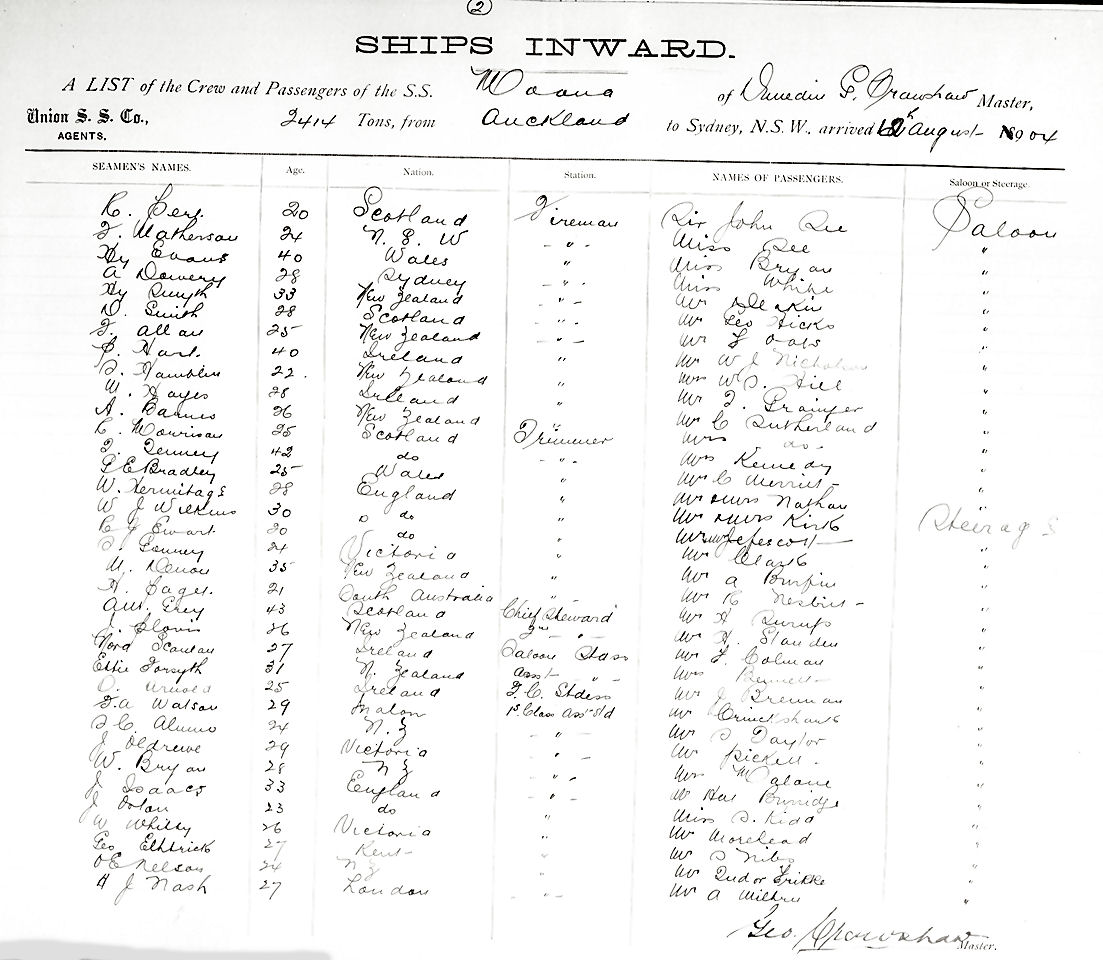 2
SHIPS INWARD.
A LIST of the Crew and Passengers of the S.S. Moana of Dunedin G. Crawshaw Master,
Union S. S. Co., AGENTS. 2414 Tons, from Auckland to Sydney, N.S.W., arrived 12th August 1904
SEAMEN'S NAMES. Age. Nation. Station. NAMES OF PASSENGERS. Saloon or Steerage
R. 20 Scotland Fireman Sir John See Saloon
J. Matherson 24 N. S. W - " - Miss See "
Hy Evans 40 Wales " Miss Bryan "
A 28 Sydney - " - Miss White "
Hy Smyth 33 New Zealand " - Mr Deakin "
D. Smith 28 Scotland " Mr Geo Hicks "
J. Allan 25 New Zealand - " - Mr "
Hart. 40 Ireland " Mr W J "
Hamblin 22. New Zealand " Mrs W Hill "
W. Hayes 28 Ireland " Mr Grainger "
A. Barnes 26 New Zealand " Mr C Sutherland "
R. Morrison 25 Scotland Trimmer Mrs do - "
42 do - " - Mrs Kennedy "
G E Bradley 25 Wales " Mr C Merritt - "
W. Hermitage 28 England " Mr & Mrs Nathan "
W J Wilkins 30 do " Mr & Mrs Kirk Steerage
R J Ewart 20 do " Mr "
24 Victoria " Mr Clark "
M. 35 New Zealand " Mr A "
H. 21 South Australia - " - Mr R Nesbitt - "
Grey 43 Scotland Chief Steward Mr A "
J. 26 New Zealand 2nd " Mr H. Standen "
Nora Scanlan 27 Ireland Saloon Stdss Mr F. Colman "
Effie Forsyth 31 N. Zealand Asst - " - Mrs Bennett - "
25 Ireland F. C. Stdess Mr J Brennan "
F. A Watson 29 1st Class Asst Std Mr Cruickshank "
24 N. Z - " - Mr Taylor "
J 29 Victoria " Mr "
W. Bryan 28 N Z - " - Mrs Malone "
J Isaacs 33 England - " - Mr Burridge "
J Dolan 23 do " Miss Kidd "
W Whitby 26 Victoria " Mr Morehead "
Geo 27 Kent - " Mr "
O E Nelson 24 N Z " Mr "
H J Nash 27 London - " - Mr A "
Geo. Crawshaw
Master.